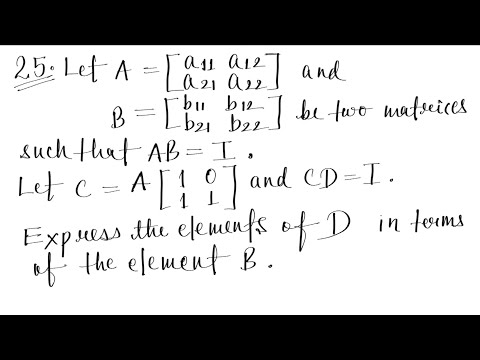 25. Let A = [a11 a12
a21 a22] and
B = [b11 b12
b21 b22] be two matrices
such that AB = I.
Let C = A [1 0
1 1] and CD = I.
Express the elements of D in terms
of the element B.